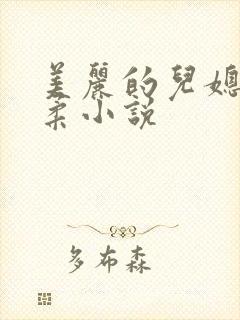 美麗的兒媳
柔小說
多布森